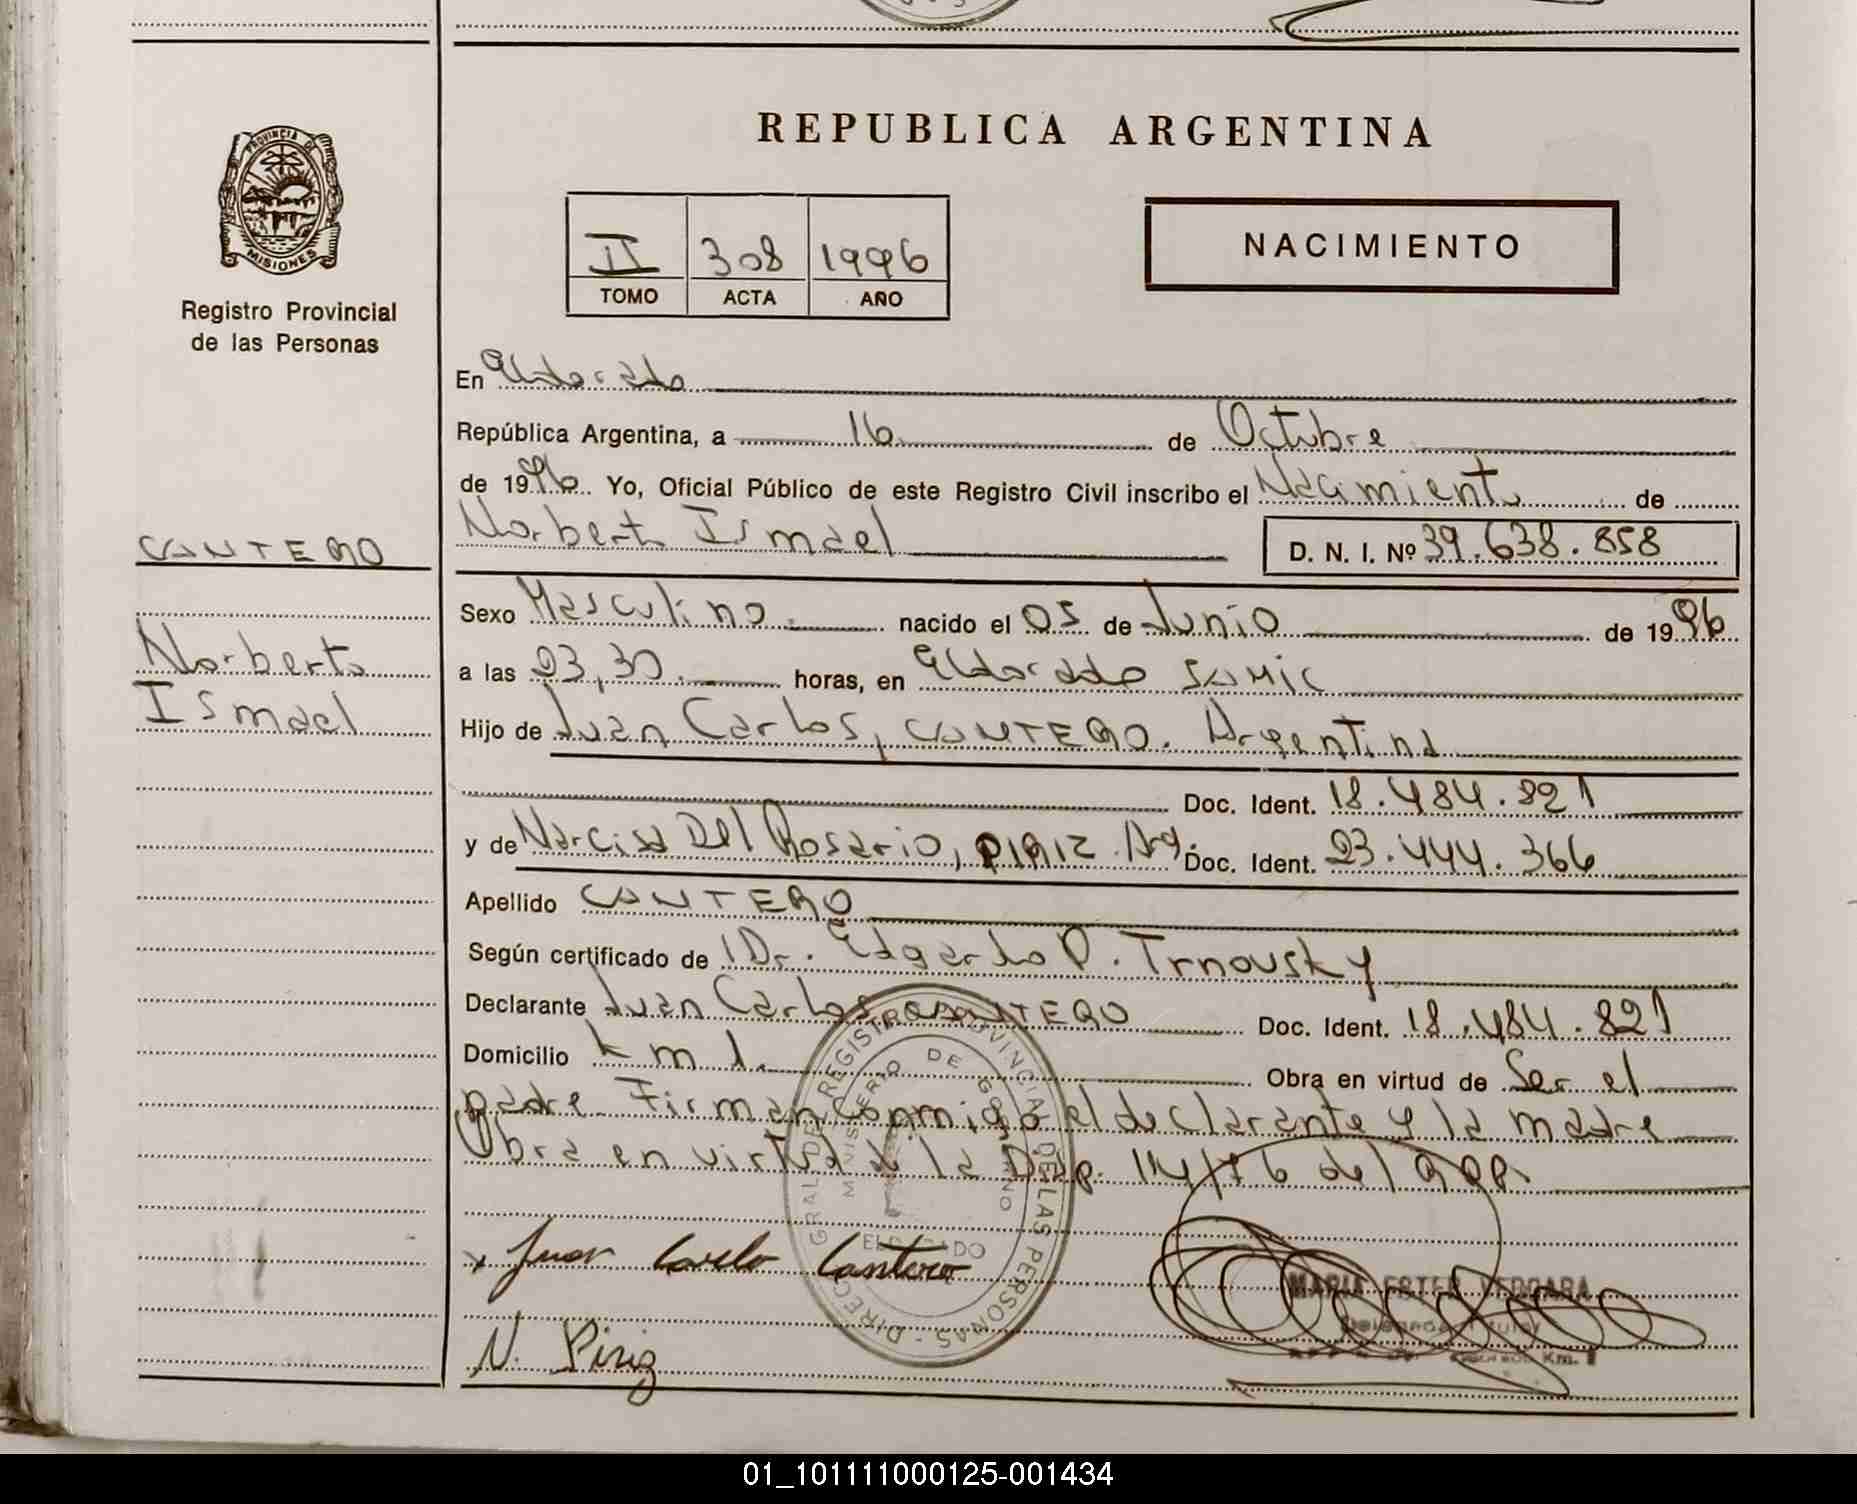 PROVINCIA DE
MISIONES
Registro Provincial
de las Personas
CANTERO
Norberto
Ismael
REPUBLICA ARGENTINA
II 308 1996
TOMO ACTA AÑO
NACIMIENTO
En Eldorado
República Argentina, a 16 de Octubre
de 1996 Yo, Oficial Público de este Registro Civil inscribo el Nacimiento de
Norberto Ismael D. N. I. Nº 39.638.858
Sexo Masculino nacido el 05 de Junio de 1996
a las 23,30 horas, en Eldorado SAMIC
Hijo de Juan Carlos, CANTERO. Argentina
Doc. Ident. 18.484.821
y de Narcisa Del Rosario, PIRIZ Arg. Doc. Ident. 23.444.366
Apellido CANTERO
Según certificado de Dr. Edgardo P. Trnovsky
Declarante Juan Carlos CANTERO Doc. Ident. 18.484.821
Domicilio km 1. Obra en virtud de Ser el
padre Firman conmigo el declarante y la madre
Obra en virtud de la Disp. 14/76 del RPP.
DIREC. GRAL. DE REGISTRO PROVINCIAL DE LAS PERSONAS
MINISTERIO DE GOBIERNO
ELDORADO
x Juan Carlo Cantero
MARIA ESTER VERGARA
Delegada Titular
Km. 1
N. Piriz
01_101111000125-001434